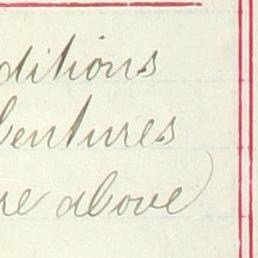 ditions
bentures
re above)